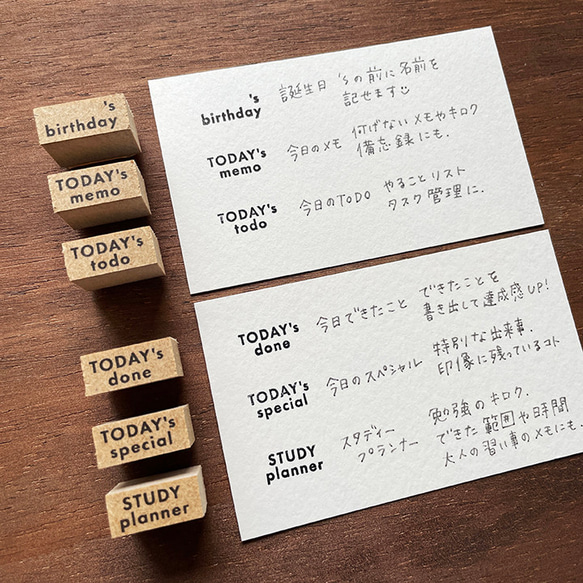 's
birthday
TODAY's
memo
TODAY's
todo
TODAY's
done
TODAY's
special
STUDY
planner
's
birthday
誕生日 'sの前に名前を
記せます
TODAY's
memo
今日のメモ
何げないメモやキロク
備忘録にも.
TODAY's
todo
今日のTODO
やることリスト
タスク管理に.
TODAY's
done
今日できたこと
できたことを
書き出して達成感UP!
TODAY's
special
今日のスペシャル
特別な出来事.
印像に残っているコト
STUDY
planner
スタディー
プランナー
勉強のキロク.
できた範囲や時間
大人の習い事のメモにも.